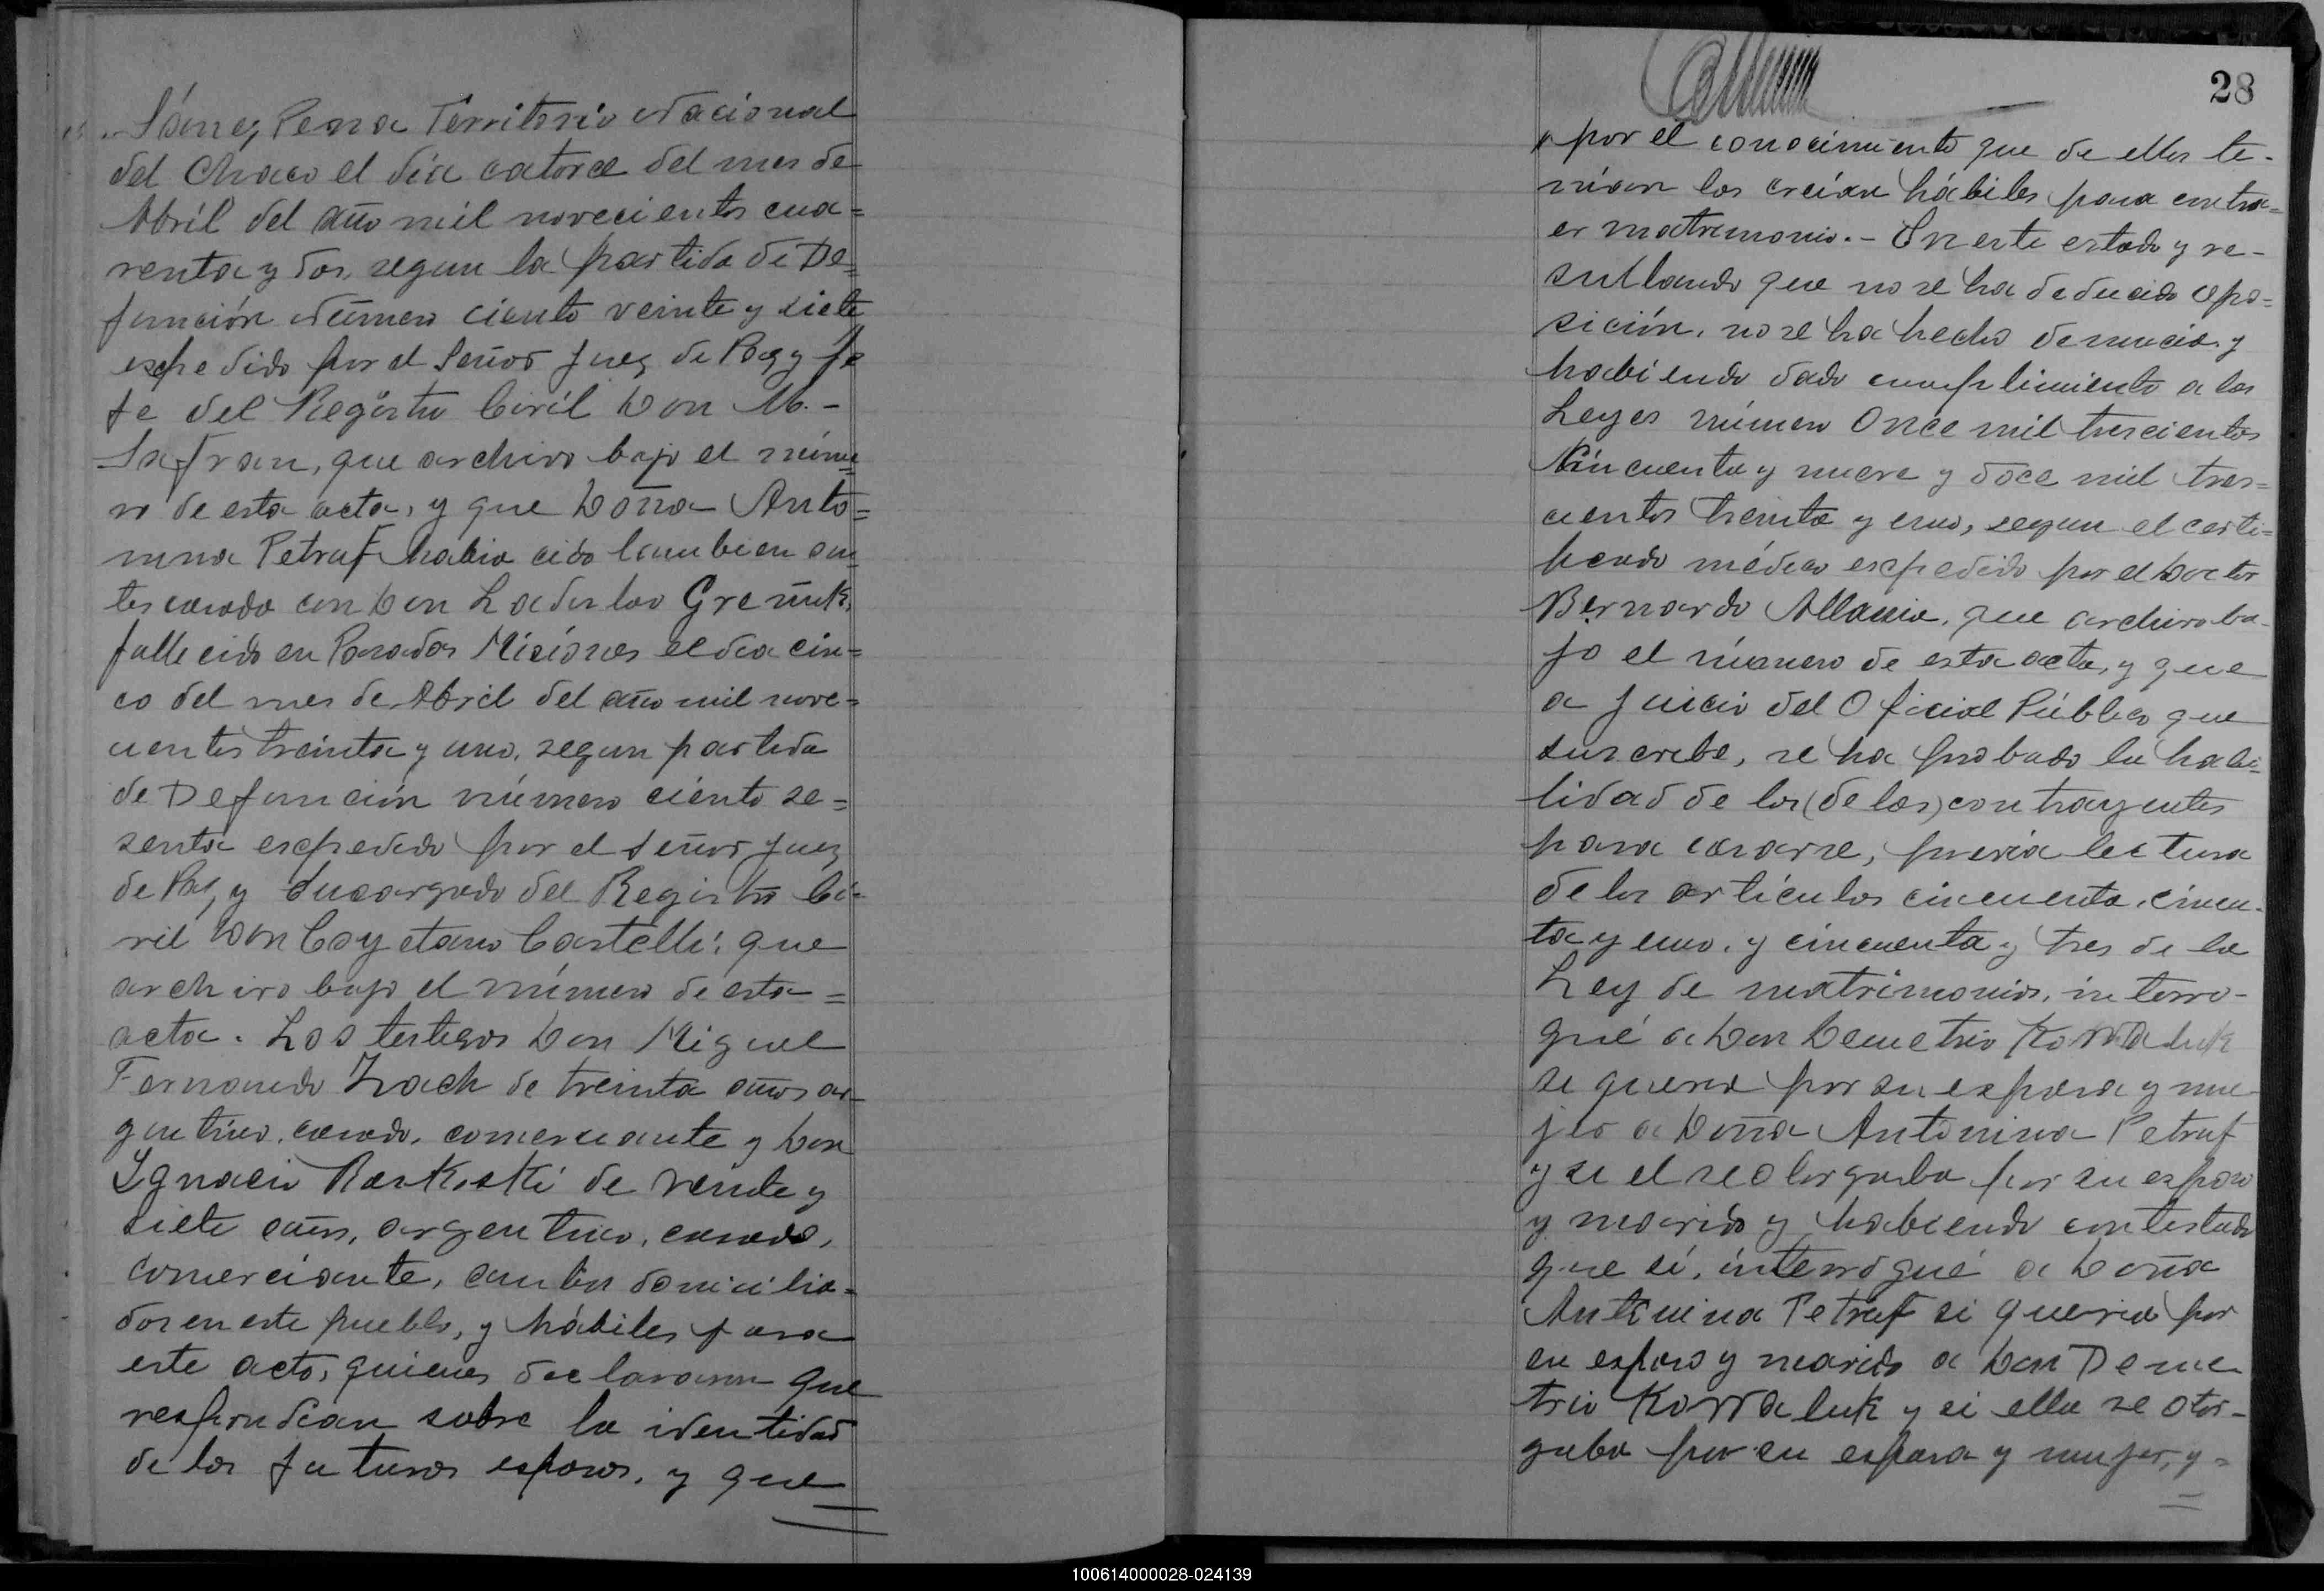 Sáenz Pena Territorio Nacional
del Chaco el día catorce del mes de
Abril del año mil novecientos cua=
renta y dos, segun la partida de De=
función número ciento veinte y siete
expedido por el Señor Juez de Paz y Je
fe del Registro Civil Don M.-
Safran, que archivo bajo el núme
ro de esta acta, y que Doña Anto=
nina Petruf habia cido tambien an
tes casada con Don Ladislao Greñuk,
fallecido en Posadas Misiónes el dia cin=
co del mes de Abril del año mil nove=
cientos treinta y uno, segun partida
de Defunción número ciento se=
senta expedido por el Señor Juez
de Paz, y Encargado del Registro Ci-
vil Don Cayetano Castelli: que
archivo bajo el número de esta =
acta. Los testigos Don Miguel
Fernando Zach de treinta años ar-
gentino, casado, comerciante y Don
Ignacio de veinte y
siete años, argentino, casado,
comerciante, ambos domicilia=
dos en este pueblo, y hábiles para
este acto, quienes declararon que
respondian sobre la identidad
de los futuros esposos, y que
28
por el conocimiento que de ellos te-
nian los creían hábiles para contra=
er matrimonio.- En este estado y re-
sultando que no se ha deducido opo=
sición, no se ha hecho denuncia y
habiendo dado cumplimiento a las
Leyes número Once mil trescientos
Cincuenta y nueve y doce mil tres=
cientos treinta y uno, segun el certi=
ficado médico expedido por el Doctor
Bernardo, que archivo ba-
jo el número de esta acta, y que
a juicio del Oficial Público que
suscribe, se ha probado la habi=
lidad de los (de los) contrayentes
para casarse, previa lectura
de los artículos cincuenta, cincuen-
ta y uno, y cincuenta y tres de la
Ley de matrimonios, interro-
gué a Don Demetrio Kowaluk
si queria por su esposa y mu-
jer a Doña Antonina Petruf
y si el se otorgaba por su esposo
y marido y habiendo contestado
que sí, interrogué a Doña
Antonina Petruf si queria por
su esposo y marido a Don Deme
trio Kowaluk y si ella se otor-
gaba por su esposa y mujer, y =
100614000028-024139